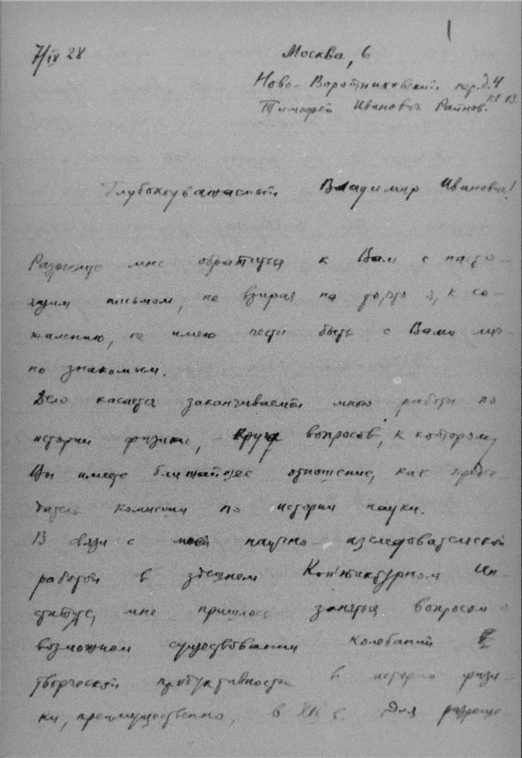 1
7/IV 28
Москва, 6
Ново-Воротниковский пер. д. 4
Тимофей Иванович Райнов. кв 13.
Глубокоуважаемый Владимир Иванович!
Разрешите мне обратиться к Вам с насто-
ящим письмом, не взирая на то, что я, к со-
жалению, не имею чести быть с Вами лич-
но знакомым.
Дело касается заканчиваемой мною работы по
истории физики, - круг вопросов, к которому
Вы имеете ближайшее отношение, как предсе-
датель комиссии по истории науки.
В связи с моей научно-исследовательской
работой в здешнем Кон'юнктурном Ин-
ституте, мне пришлось заняться вопросом о
возможном существовании колебаний
творческой продуктивности в истории физи-
ки, преимущественно, в XIX в. Для разреше-